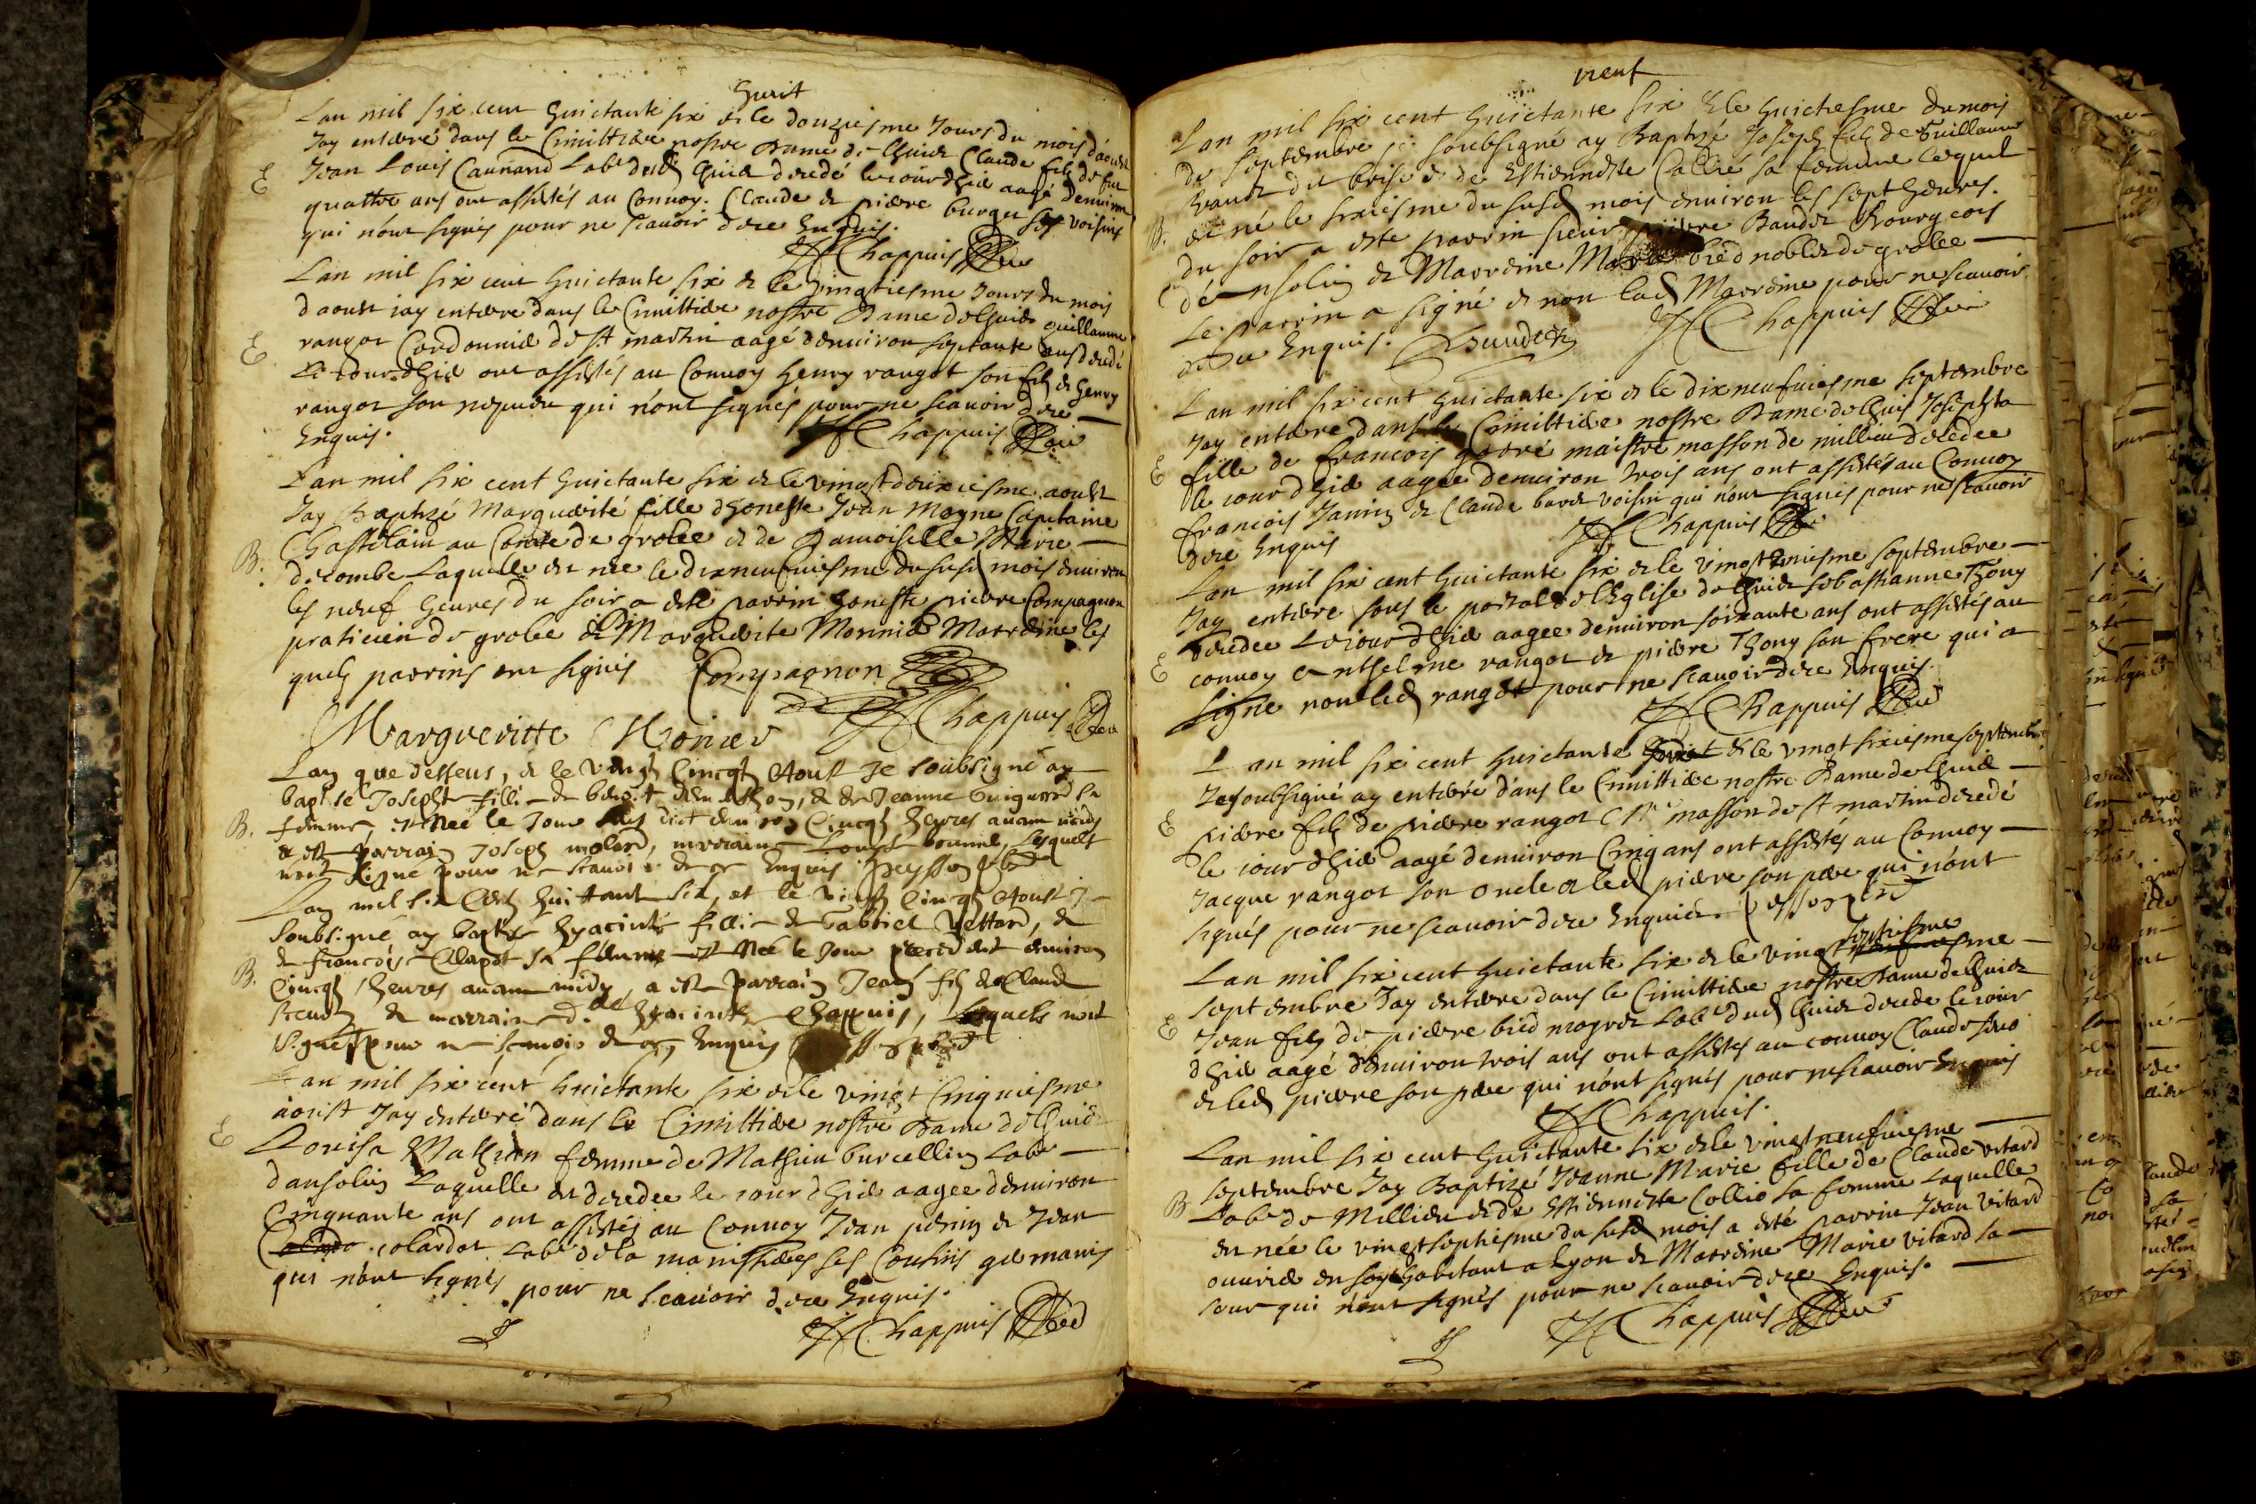 huict
Lan mil six cent huictante six et le douziesme Jour du mois daoust
Jay enterré dans le Cimittiere nostre Dame de Lhuis Claude fils de fut
E Jean Louis Caunand Lab dud Lhuis decedé le iourdhier aagé denuiron
quattre ans ont assistés au Conuoy Claude et pierre burger ses voisins
qui nónt signés pour ne scauoir dece Enquis.
Chappuis
Lan mil six cent huictante six et le vingtiesme Jour du mois
daoust iay enterre dans le Cimittiere nostre Dame de Lhuis guillaume
E rangot Cordonnier de st martin aagé denuiron septante ans decedé
Le iourdhier ont assistés au Conuoy henry rangot son fils et henry
rangot son nepueu qui n'ont signés pour ne scauoir dece
Enquis.
Chappuis
Lan mil six cent huictante six et le vingtdeuxiesme aoust
Jay Baptizé Marguerite fille dhoneste Jean Moyne Capitaine
Chastelain au Comte de grolee et de Damoiselle Marie
B. decombe Laquelle est née le dixneufuiesme du susd mois enuiron
les neuf heures du soir a esté parrin honeste pierre Compagnon
praticien de grolee et Marguerite Monnier Marreine les
quels parrins ont signés Compagnon
Chappuis
Margueritte Monier
Lan que dessus, et le vingt Cincq Aoust Je soubsigné ay
baptisé Josephte fille de benoit et de Jeanne Guiguerd sa
B. femme, est Née le Jour dict enuiron Cincq heures auant midy
a est parrain Joseph molard, marraine bonnard, Lesquels
nont signé pour ne scauoir de ce Enquis
Lan mil six Cent huittante six, et le vingt Cincq Aoust Je
soubsigné ay baptisé hyacinte fille de Gabriel Vettard, et
de francoise Clapot sa femme est Née le Jour precedent enuiron
B. Cincq heures auant midy, a est parrain Jean fils de Claude
et marraine d.lle hyacinthe Chappuis, Lesquels nont
signé pour ne scauoir de ce Enquis
Lan mil six cent huictante six et le vingt Cinquiesme
aoust Jay enterré dans le Cimittiere nostre Dame de Lhuis
E Louisa Mathian femme de Mathieu burcellin Lab
dansolin Laquelle est decedee le iour dhier aagee denuiron
Cinquante ans ont assistés au Conuoy Jean perin et Jean
colardot Lab de la ses Cousins germains
qui nónt signés pour ne scauoir dece Enquis.
Chappuis
neuf
Lan mil six cent huictante six et le huictiesme du mois
de septembre je soubsigné ay Baptizé Joseph fils de Guillaume
dit brise et de Estiennette Callié sa femme lequel
B. est né le sixiesme du susd mois enuiron les sept heures
du soir a este parrin sieur pierre Baudet Bourgeois
dénsolin et Marreine Marie bied nobles de grolee
Le parrin a signé et non lad Marreine pour ne scauoir
dece Enquis. Baudet Chappuis
Lan mil six cent huictante six et le dixneufuiesme septembre
Jay enterre dans le Cimittiere nostre Dame de Lhuis Josephta
E fille de francois maistre masson de millieu decedee
le iour dhier aagee denuiron trois ans ont assistés au Conuoy
francois Janin et Claude voisin qui nónt signés pour ne scauoir
dece Enquis
Chappuis
Lan mil six cent huictante six et le vingt uniesme septembre
Jay enterre sous le portal de lEglise de Lhuis sebastianne Thony
E decedee Leiour dhier aagee denuiron soixante ans ont assistés au
conuoy Anthelme rangot et pierre Thony son frere qui a
signe non led rangot pour ne scauoir dece Enquis.
Chappuis
Lan mil six cent huictante et le vingt sixiesme septembre
Je soubsigné ay enterré dans le Cimittiere nostre Dame de Lhuis
E pierre fils de pierre rangot masson de st martin decedé
le iour dhier aagé denuiron Cinq ans ont assistés au Conuoy
Jacque rangot son oncle et led pierre son pere qui nónt
signés pour ne scauoir dece Enquis
septiesme
Lan mil six cent huictante six et le vingt neufuiesme
septembre Jay enterre dans le Cimittiere nostre Dame de Lhuis
E Jean fils de pierre bied Lab dud Lhuis decede le iour
dhier aagé denuiron trois ans ont assistés au conuoy Claude
et led pierre son pere qui n'ont signés pour ne scauoir Enquis
Chappuis.
Lan mil six cent huictante six et le vingtneufuiesme
septembre Jay Baptizé Jeanne Marie fille de Claude vitard
B Lab de Millieu et de Estiennette Collio sa femme Laquelle
est née le vingtseptiesme du susd mois a esté parrin Jean vitard
ouurier en soye habitant a Lyon et Marreine Marie vitard sa
soeur qui nónt signés pour ne scauoir dece Enquis.
Chappuis